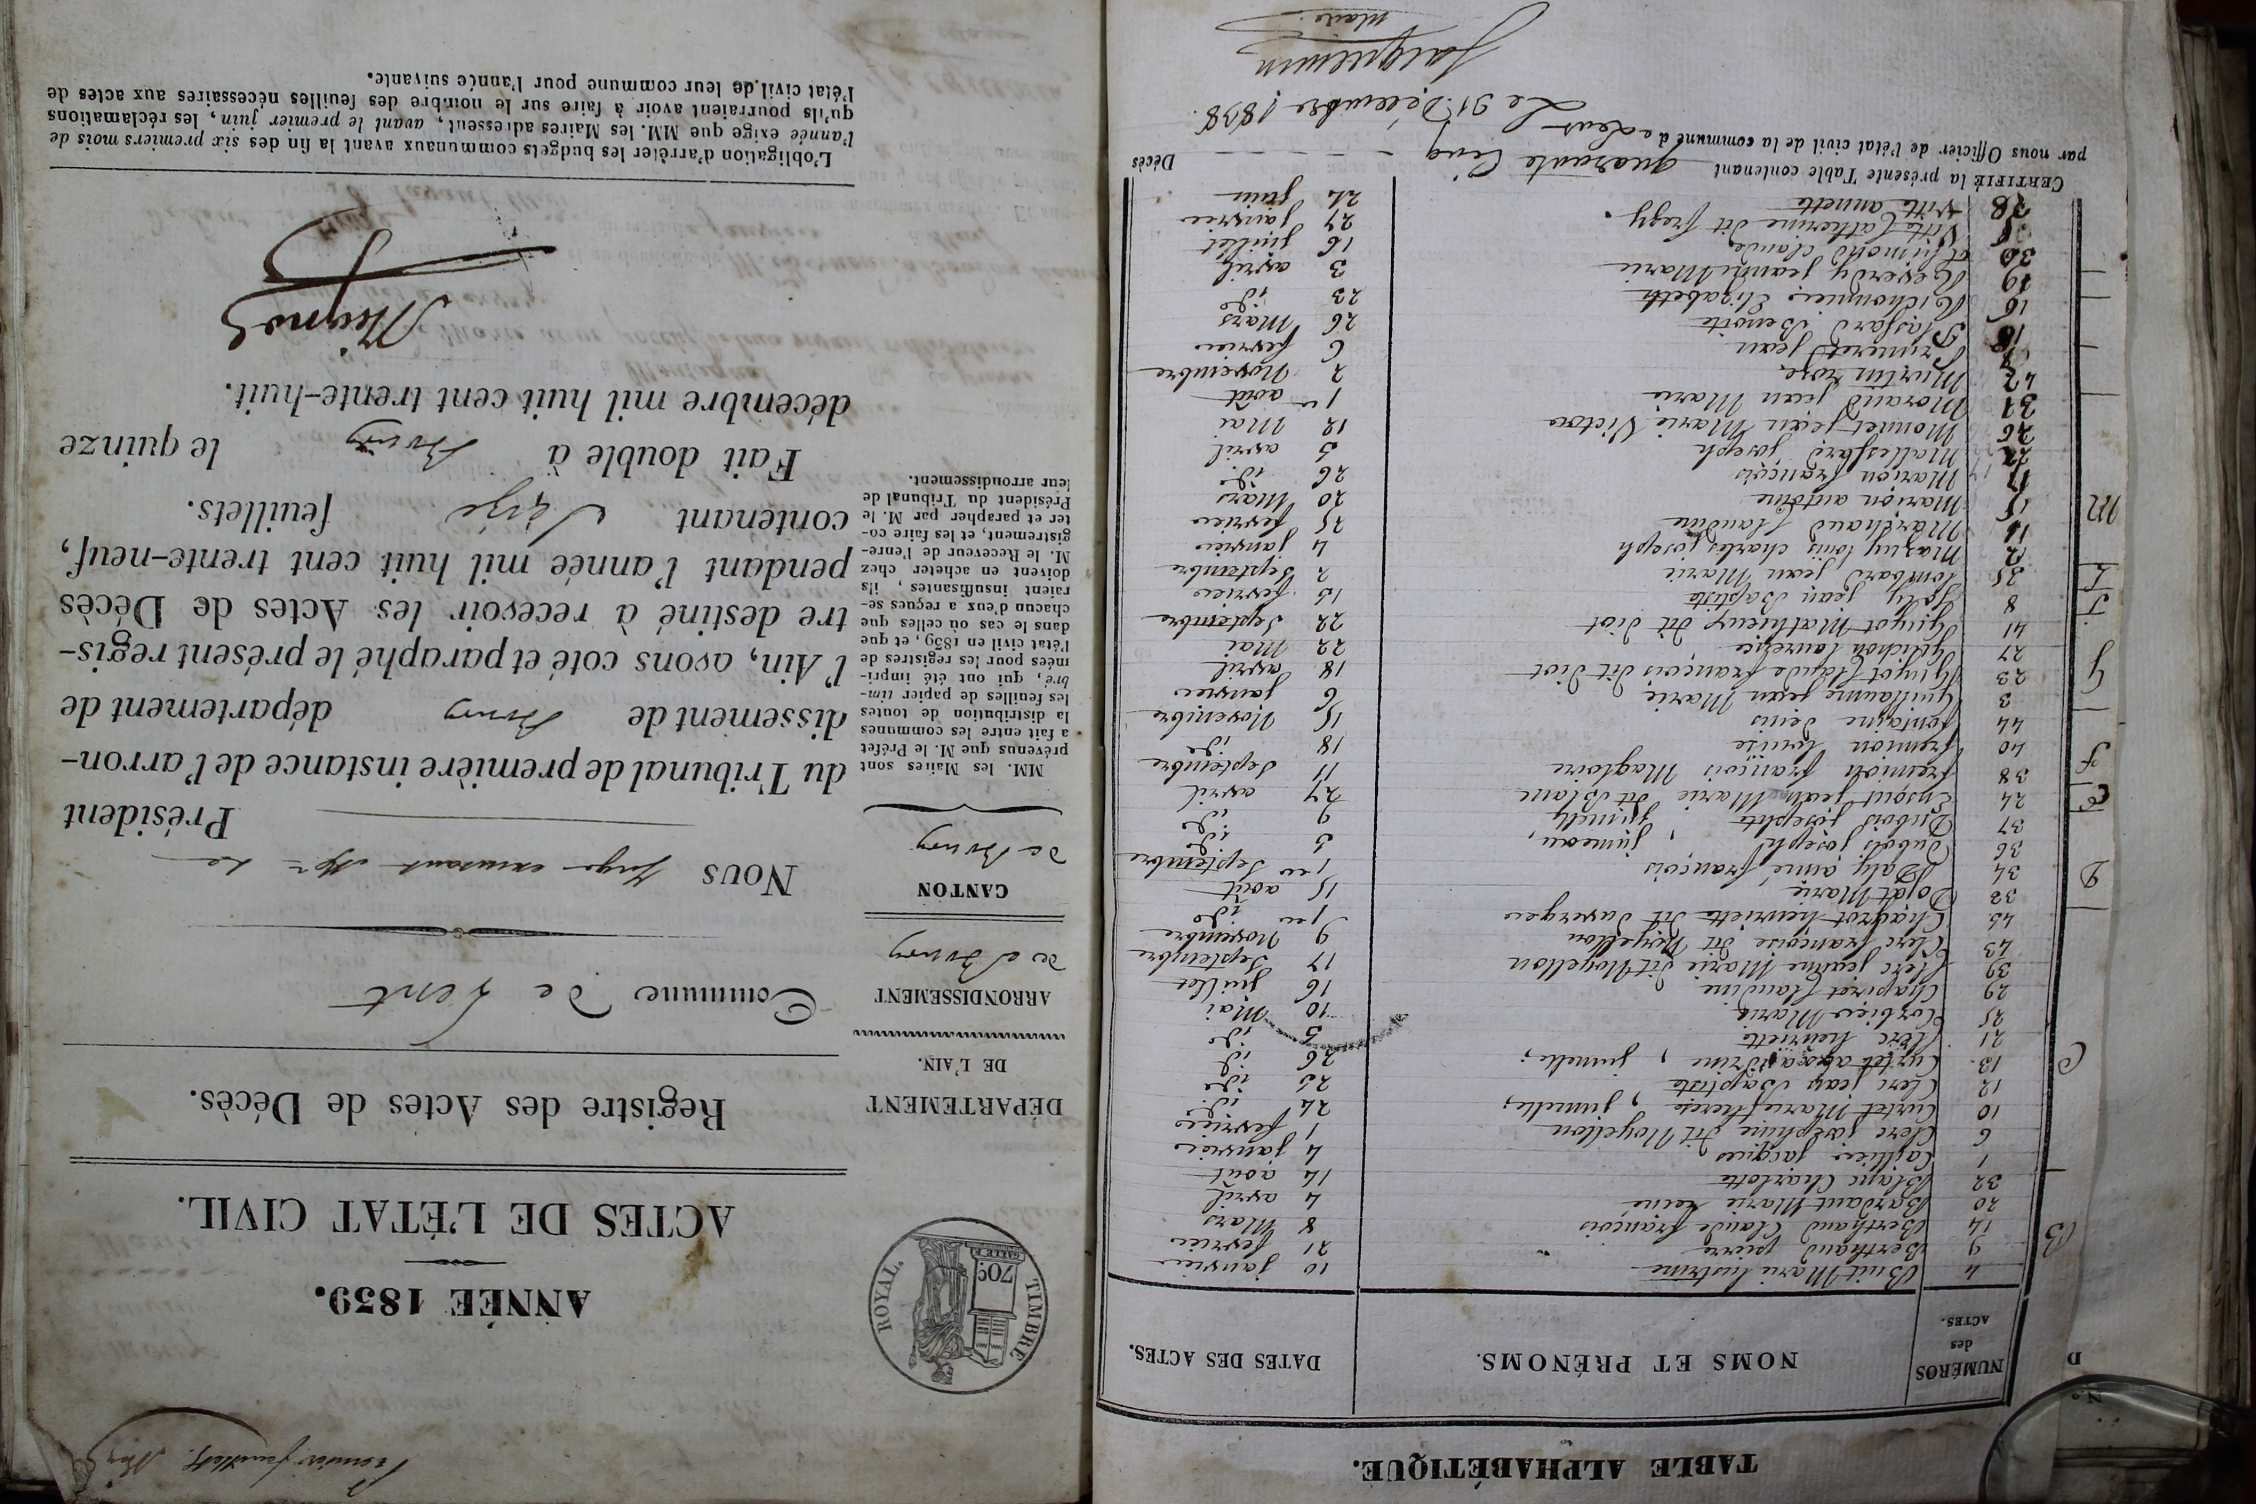 TABLE ALPHABÉTIQUE.
NUMÉROS des ACTES.
NOMS ET PRÉNOMS.
DATES DES ACTES.
B
4 Buit Marie 10 janvier
9 Berthaud pierre 21 fevrier
14 Berthaud Claude françois 8 Mars
20 Bardant Marie reine 4 avril
32 Blanc Charlotte 14 août
C
1 Caillier jacques 4 janvier
6 Clerc joséphine dit Noyellon 1 fevrier
10 Curtet Marie therese, jumelle; 24 id.
12 Clerc jean Baptiste 25 id.
13. Curtet, jumelle; 26 id.
21 Clerc henriette 5 id.
25 Corbier Marie 10 Mai
29 Chapiret Claudine 16 juillet
39 Clerc jeanne Marie dit Noyellon 17 Septembre
43 Clerc françoise dit Noyellon 9 Novembre
45 Chagrot henriette dit duverger 1er id.
D
33 Dojat Marie 15 août
34 Daly aimé françois 1er Septembre
36 Dubois joseph, jumeau, 5 id.
37 Dubois josephte, jumelle 9 id.
E
24 Ensout jean Marie dit Blanc 27 avril
F
38 fremion françois Magloire 11 Septembre
40 fremion louise 18 id.
44 fontaine denis 15 Novembre
G
3 Guillaume jean Marie 6 janvier
23 Guyot Claude françois dit diot 18 avril
27 Guichon laurence 22 Mai
41 Guyot Mathieu dit diot 22 Septembre
J
8 Joly jean Baptiste 15 fevrier
L
35 Lombard jean Marie 2 Septembre
M
2 Mazuy louis charles joseph 4 janvier
11 Marchand Claudine 25 fevrier
15 Marion antoine 20 Mars
17 Marion françois 26 id.
22 Mallessard joseph 5 avril
26 Monnet jean Marie Victor 12 Mai
31 Morand jean Marie 1er août
42 Martin rose 2 Novembre
7 Primeret jean 6 fevrier
16 Passard Benoite 26 Mars
16 Richonnier Elizabeth 23 id.
19 Reverdy jeanne Marie 3 avril
30 Claude 16 juillet
5 Vitte Catherine dit fregy. 27 janvier
28 Vitte annette 24 juin
CERTIFIÉ la présente Table contenant quarante Cinq Décès
par nous Officier de l'état civil de la commune de Lent
Le 31 Décembre 1838.
Jacquemin
Maire.
Premier feuillet.
TIMBRE ROYAL.
70c.
ANNÉE 1839.
ACTES DE L'ÉTAT CIVIL.
Registre des Actes de Décès.
DÉPARTEMENT
DE L'AIN.
ARRONDISSEMENT
de Bourg
CANTON
de Bourg
MM. les Maires sont
prévenus que M. le Préfet
a fait entre les communes
la distribution de toutes
les feuilles de papier tim-
bré, qui ont été impri-
mées pour les registres de
l'état civil en 1839, et que
dans le cas où celles que
chacun d'eux a reçues se-
raient insuffisantes, ils
doivent en acheter chez
M. le Receveur de l'enre-
gistrement, et les faire co-
ter et parapher par M. le
Président du Tribunal de
leur arrondissement.
Commune de Lent
NOUS Juge exerçant pr le
Président
du Tribunal de première instance de l'arron-
dissement de Bourg département de
l'Ain, avons coté et paraphé le présent regis-
tre destiné à recevoir les Actes de Décès
pendant l'année mil huit cent trente-neuf,
contenant Seize feuillets.
Fait double à Bourg le quinze
décembre mil huit cent trente-huit.
L'obligation d'arrêter les budgets communaux avant la fin des six premiers mois de
l'année exige que MM. les Maires adressent, avant le premier juin, les réclamations
qu'ils pourraient avoir à faire sur le nombre des feuilles nécessaires aux actes de
l'état civil de leur commune pour l'année suivante.